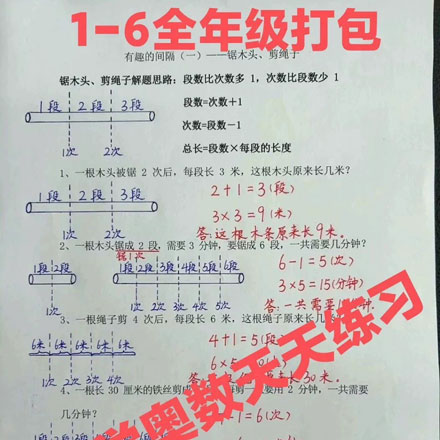 1-6全年级打包
有趣的间隔（一）——锯木头、剪绳子
锯木头、剪绳子解题思路：段数比次数多 1，次数比段数少 1
1段 2段 3段
段数=次数+1
次数=段数-1
1次 2次
总长=段数×每段的长度
1、一根木头被锯 2 次后，每段长 3 米，这根木头原来长几米？
1段 2段 3段
2+1=3(段)
3×3=9(米)
1次 2次
答:这根木条原来长9米.
2、一根木头锯成 2 段，需要 3 分钟，要锯成 6 段，一共需要几分钟？
锯1次
1段 2段
1段 2段 3段 4段 5段 6段
6-1=5(次)
3×5=15(分钟)
1次
1次 2次 3次 4次 5次
答:一共需要
分钟.
3、一根绳子剪 4 次后，每段长 6 米，这根绳子原来长几
6米 6米 6米 6米 6米
4+1=5(段)
6×5
1次 2次 3次 4次
长30米.
4、一根长 30 厘米的铁丝剪成
要用 2 分钟，一共需要
几分钟？
1=6(次)
学奥数天天练习